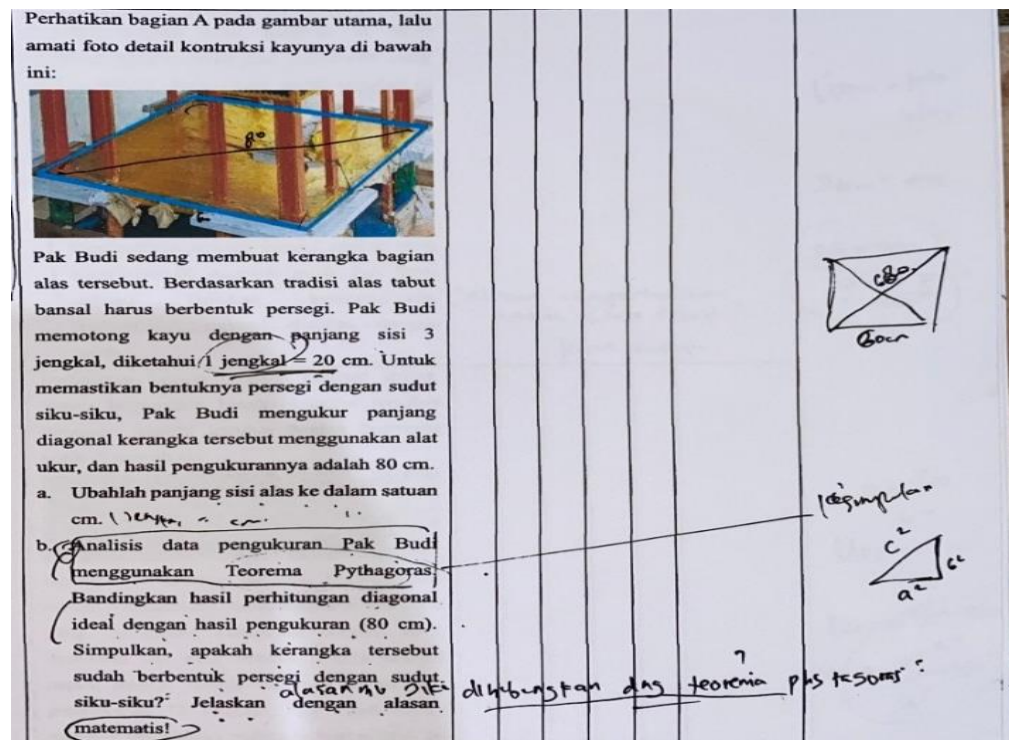 Perhatikan bagian A pada gambar utama, lalu
amati foto detail kontruksi kayunya di bawah
ini:
80
Pak Budi sedang membuat kerangka bagian
alas tersebut. Berdasarkan tradisi alas tabut
bansal harus berbentuk persegi. Pak Budi
memotong kayu dengan panjang sisi 3
jengkal, diketahui 1 jengkal = 20 cm. Untuk
memastikan bentuknya persegi dengan sudut
siku-siku, Pak Budi mengukur panjang
diagonal kerangka tersebut menggunakan alat
ukur, dan hasil pengukurannya adalah 80 cm.
80
60cm
a. Ubahlah panjang sisi alas ke dalam satuan
cm.
kesimpulan
b. Analisis data pengukuran Pak Budi
menggunakan Teorema Pythagoras.
Bandingkan hasil perhitungan diagonal
ideal dengan hasil pengukuran (80 cm).
Simpulkan, apakah kerangka tersebut
sudah berbentuk persegi dengan sudut
siku-siku? Jelaskan dengan alasan
matematis!
c²
a²
alasanmu jika dihubungkan dng teorema
?